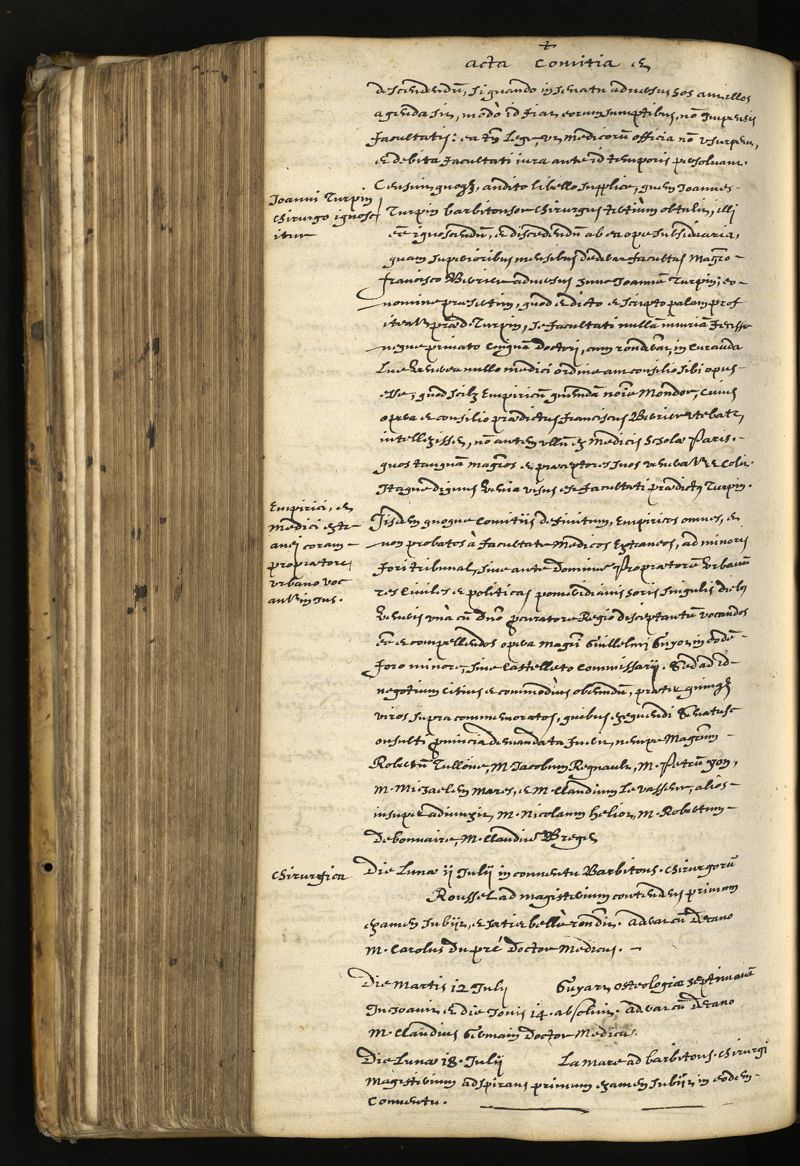 acta Comitia et
descendendū, si quando in senatu adversus eos aut illos
agenda sit, modò id fiat eorum sumptibus, nō Impensis
facultatis: ea tn̄ lege, ut medicorū officia nō usurpent,
et debita facultati iura ante id temporis persolvant.
Joanni Turpin
chirurgo ignosc
itur
Censuit quoqȝ, audito libello supplice, quem Joannes
Turpin barbitonsor chirurgus obtulit, illi
eē ignoscendū, et discedendū ab ea ope subsidiaria,
quam superioribus mensibus dederat facultas Magrō
Francisco Verrier adversus hunc Joannē Turpin; eo
nomine praesertim, quod edicto et scripto palam prof
iteatur praed. Turpin, se facultati nullā iniuriā fecisse
neque privato cuiquā Doctori, cum ronderet, in curanda
lue venerea nullo medici ordine aut consilio sibi opus
esse, quod scilȝ Empiricū quendā noīe Mondor, cuius
opera et consilio praedictus franciscus Verrier utebatr,
intellexisset, nō autem ullū ex medicis scholae Paris.
quos tanquā magros et praeceptores suos veneratur et colit.
Itaque dignus venia visus est facultati praedictus Turpin.
Empirici, et
medici extr
anei coram
propraetore
urbano voc
antur in Jus.
Iisdem quoque Comitiis definitum, Empiricos omnes, et
non probatos à facultate medicos Extraneos, ad minoris
fori tribunal, sive ante Dominū Propraetorē Urbanū
res civiles et politicas pomeridianis horis singulis diebꝰ
veneris unà cū Dn̄o procuratore Regio disceptantē vocandos
eē et compellendos opera magri Guillelmi Guyot in eodē
foro minore, sive Castelleto Commissarij. Sed ad id
negotium citius et commodius obeundū, praeter quinqȝ
viros supra commemoratos, quibus exequendi Senatusc
onsulti provincia demandata fuit, nempe Magrum
Robertū Tullone, M. Jacobum Regnault, M. Petrū yon,
M. Michaelem Mares, et M. Claudium le vasseur, alios
insuper adiunxit, M. Nicolaum heliot, M. Robertum
Debonnaire, M. Claudiū Breget
chirurgica
Die Lunae ij Julij in conventu Barbitons. chirurgorū
Roussel ad magisterium contendens primum
examen subijt, et satis bellè rondit. aderat cū Decano
M. Carolus Dupré Doctor Medicus.
Die Martis 12 July Guyart osteologiae septimanā
Inijt, et die Jovis 14 absolvit. aderat cū Decano
M. Claudius Germain Doctor Medicus.
Die Lunae 18 Julij La mare ad barbitons. chirurgi
Magisterium adspirans primum examen subijt in eodem
Conventu.